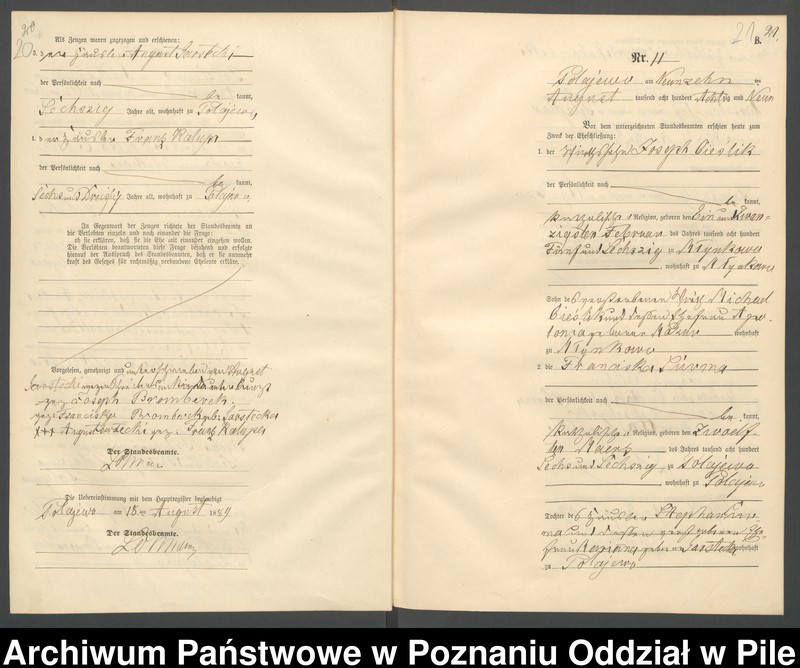 20
20
Als Zeugen waren zugezogen und erschienen:
2. der Häusler August
der Persönlichkeit nach
be kannt,
Sechszig Jahre alt, wohnhaft zu Polajewo
1. der Häusler Franz
der Persönlichkeit nach
be kannt,
Sechs und Dreißig Jahre alt, wohnhaft zu Polajewo
In Gegenwart der Zeugen richtete der Standesbeamte an
die Verlobten einzeln und nach einander die Frage:
ob sie erklären, daß sie die Ehe mit einander eingehen wollen.
Die Verlobten beantworteten diese Frage bejahend und erfolgte
hierauf der Ausspruch des Standesbeamten, daß er sie nunmehr
kraft des Gesetzes für rechtmäßig verbundene Eheleute erkläre.
Vorgelesen, genehmigt und
gez. Joseph Bromberek
gez. Franciska Bromberek geb.
+++ August gez. Franz
Der Standesbeamte.
Die Uebereinstimmung mit dem Hauptregister beglaubigt
Polajewo am 18ten August 1889
Der Standesbeamte.
21 B. 21.
Nr. 11
Polajewo am Neunzehn ten
August tausend acht hundert Achtzig und Neun
Vor dem unterzeichneten Standesbeamten erschien heute zum
Zweck der Eheschließung:
1. der Wirthssohn Joseph Cieślik
der Persönlichkeit nach
be kannt,
katholischer Religion, geboren den Ein und Zwan-
zigsten Februar des Jahres tausend acht hundert
Fünf und Sechszig zu Młynkowo
, wohnhaft zu Młynkowo
Sohn des verstorbenen Wirth Michael
Cieślik und dessen Ehefrau Apo-
lonia geborenen wohnhaft
zu Młynkowo
2. die Franciska Surma
der Persönlichkeit nach
be kannt,
katholischer Religion, geboren den Zwölf-
ten Maerz des Jahres tausend acht hundert
Sechs und Sechszig zu Polajewo
wohnhaft zu Polajewo
Tochter des Häusler Stephan Sur-
ma und dessen verstorbenen Ehe-
frau geborenen wohnhaft
zu Polajewo
Archiwum Państwowe w Poznaniu Oddział w Pile